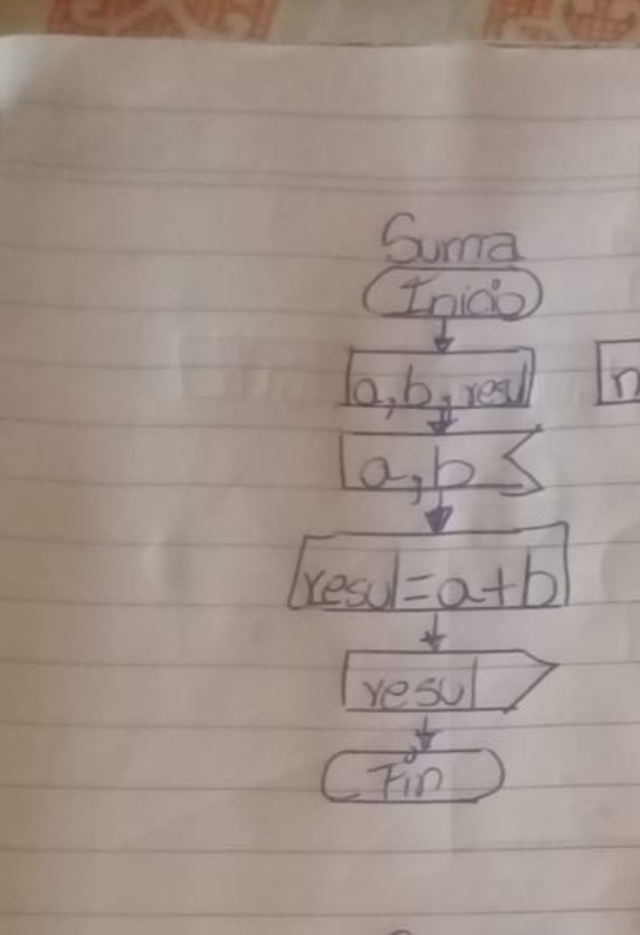 Suma
Inicio
a, b, resul
n
a, b
resul=a+b
resul
Fin